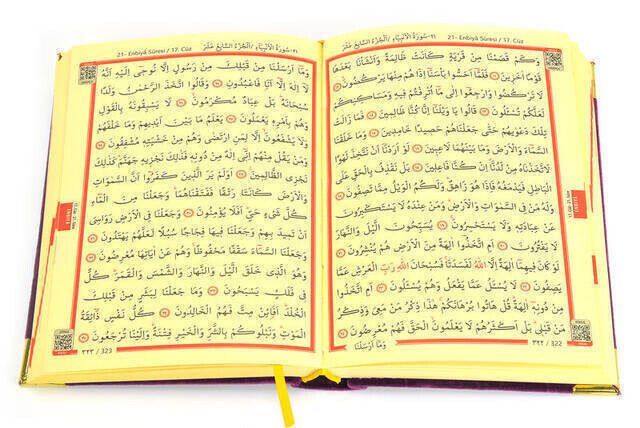 ٢١-سُورَةُ الْاَنْبِيَاءِ /اَلْجُزْءُ السَّابِعُ عَشَرَ 21- Enbiyâ Sûresi / 17. Cüz
وَكَمْ قَصَمْنَا مِنْ قَرْيَةٍ كَانَتْ ظَالِمَةً وَاَنْشَأْنَا بَعْدَهَا
قَوْمًا اٰخَرٖينَ ﴿١١﴾ فَلَمَّٓا اَحَسُّوا بَأْسَنَٓا اِذَا هُمْ مِنْهَا يَرْكُضُونَ ﴿١٢﴾
لَا تَرْكُضُوا وَارْجِعُٓوا اِلٰى مَٓا اُتْرِفْتُمْ فٖيهِ وَمَسَاكِنِكُمْ
لَعَلَّكُمْ تُسْـَٔلُونَ ﴿١٣﴾ قَالُوا يَا وَيْلَنَٓا اِنَّا كُنَّا ظَالِمٖينَ ﴿١٤﴾ فَمَا زَالَتْ
تِلْكَ دَعْوٰيهُمْ حَتّٰى جَعَلْنَاهُمْ حَصٖيدًا خَامِدٖينَ ﴿١٥﴾ وَمَا خَلَقْنَا
السَّمَٓاءَ وَالْاَرْضَ وَمَا بَيْنَهُمَا لَاعِبٖينَ ﴿١٦﴾ لَوْ اَرَدْنَٓا اَنْ نَتَّخِذَ لَهْوًا
لَاتَّخَذْنَاهُ مِنْ لَدُنَّا اِنْ كُنَّا فَاعِلٖينَ ﴿١٧﴾ بَلْ نَقْذِفُ بِالْحَقِّ عَلَى
الْبَاطِلِ فَيَدْمَغُهُ فَاِذَا هُوَ زَاهِقٌ وَلَكُمُ الْوَيْلُ مِمَّا تَصِفُونَ ﴿١٨﴾
وَلَهُ مَنْ فِي السَّمٰوَاتِ وَالْاَرْضِ وَمَنْ عِنْدَهُ لَا يَسْتَكْبِرُونَ
عَنْ عِبَادَتِهٖ وَلَا يَسْتَحْسِرُونَ ﴿١٩﴾ يُسَبِّحُونَ الَّيْلَ وَالنَّهَارَ
لَا يَفْتُرُونَ ﴿٢٠﴾ اَمِ اتَّخَذُٓوا اٰلِهَةً مِنَ الْاَرْضِ هُمْ يُنْشِرُونَ ﴿٢١﴾
لَوْ كَانَ فٖيهِمَٓا اٰلِهَةٌ اِلَّا اللّٰهُ لَفَسَدَتَا فَسُبْحَانَ اللّٰهِ رَبِّ الْعَرْشِ عَمَّا
يَصِفُونَ ﴿٢٢﴾ لَا يُسْـَٔلُ عَمَّا يَفْعَلُ وَهُمْ يُسْـَٔلُونَ ﴿٢٣﴾ اَمِ اتَّخَذُوا
مِنْ دُونِهٖٓ اٰلِهَةً قُلْ هَاتُوا بُرْهَانَكُمْ هٰذَا ذِكْرُ مَنْ مَعِيَ وَذِكْرُ
مَنْ قَبْلٖي بَلْ اَكْثَرُهُمْ لَا يَعْلَمُونَ الْحَقَّ فَهُمْ مُعْرِضُونَ ﴿٢٤﴾
وَمَٓا اَرْسَلْنَا
٣٢٢ / 322
٢١-سُورَةُ الْاَنْبِيَاءِ /اَلْجُزْءُ السَّابِعُ عَشَرَ 21- Enbiyâ Sûresi / 17. Cüz
وَمَٓا اَرْسَلْنَا مِنْ قَبْلِكَ مِنْ رَسُولٍ اِلَّا نُوحٖٓي اِلَيْهِ اَنَّهُ
لَٓا اِلٰهَ اِلَّٓا اَنَا فَاعْبُدُونِ ﴿٢٥﴾ وَقَالُوا اتَّخَذَ الرَّحْمٰنُ وَلَدًا
سُبْحَانَهُ بَلْ عِبَادٌ مُكْرَمُونَ ﴿٢٦﴾ لَا يَسْبِقُونَهُ بِالْقَوْلِ
وَهُمْ بِاَمْرِهٖ يَعْمَلُونَ ﴿٢٧﴾ يَعْلَمُ مَا بَيْنَ اَيْدٖيهِمْ وَمَا خَلْفَهُمْ
وَلَا يَشْفَعُونَ اِلَّا لِمَنِ ارْتَضٰى وَهُمْ مِنْ خَشْيَتِهٖ مُشْفِقُونَ ﴿٢٨﴾
وَمَنْ يَقُلْ مِنْهُمْ اِنّٖٓي اِلٰهٌ مِنْ دُونِهٖ فَذٰلِكَ نَجْزٖيهِ جَهَنَّمَ كَذٰلِكَ
نَجْزِي الظَّالِمٖينَ ﴿٢٩﴾ اَوَلَمْ يَرَ الَّذٖينَ كَفَرُٓوا اَنَّ السَّمٰوَاتِ
وَالْاَرْضَ كَانَتَا رَتْقًا فَفَتَقْنَاهُمَا وَجَعَلْنَا مِنَ الْمَٓاءِ
كُلَّ شَيْءٍ حَيٍّ اَفَلَا يُؤْمِنُونَ ﴿٣٠﴾ وَجَعَلْنَا فِي الْاَرْضِ رَوَاسِيَ
اَنْ تَمٖيدَ بِهِمْ وَجَعَلْنَا فٖيهَا فِجَاجًا سُبُلًا لَعَلَّهُمْ يَهْتَدُونَ ﴿٣١﴾
وَجَعَلْنَا السَّمَٓاءَ سَقْفًا مَحْفُوظًا وَهُمْ عَنْ اٰيَاتِهَا مُعْرِضُونَ ﴿٣٢﴾
وَهُوَ الَّذٖي خَلَقَ الَّيْلَ وَالنَّهَارَ وَالشَّمْسَ وَالْقَمَرَ كُلٌّ
فٖي فَلَكٍ يَسْبَحُونَ ﴿٣٣﴾ وَمَا جَعَلْنَا لِبَشَرٍ مِنْ قَبْلِكَ
الْخُلْدَ اَفَا۬ئِنْ مِتَّ فَهُمُ الْخَالِدُونَ ﴿٣٤﴾ كُلُّ نَفْسٍ ذَٓائِقَةُ
الْمَوْتِ وَنَبْلُوكُمْ بِالشَّرِّ وَالْخَيْرِ فِتْنَةً وَاِلَيْنَا تُرْجَعُونَ ﴿٣٥﴾
٣٢٣ / 323